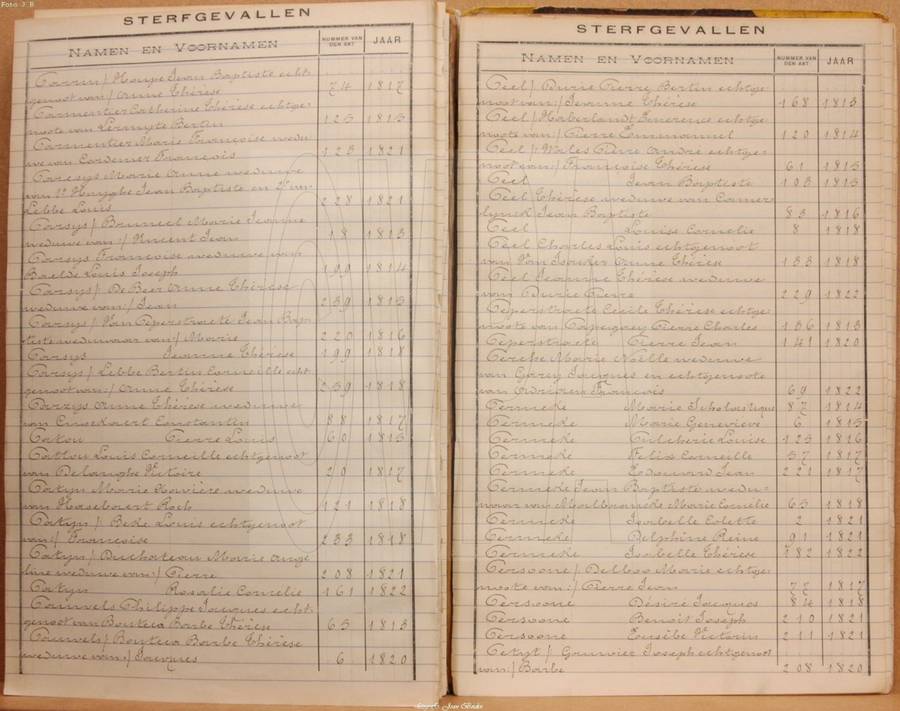 Foto J B
STERFGEVALLEN
NAMEN EN VOORNAMEN
NUMMER VAN DEN AKT
JAAR
Houpe Jean Baptiste echt-
genoot van / Anne Thérèse 74 1817
Carmentier Catherine Thérèse echtge-
noote van Bertin 123 1813
Carmentier Marie Françoise wedu-
we van Cordenier François 123 1821
Marie Anne weduwe
van 1° Huyghe Jean Baptiste en 2°
Lebbe Louis 228 1821
Carsys / Bruneel Marie Jeanne
weduwe van / Vincent Jean 18 1813
Carsys Françoise weduwe van
Baelde Louis Joseph 199 1814
Carsys / De Beer Anne Thérèse
weduwe van / Jean 239 1815
Carsys / Van Peperstraete Jean Bap-
tiste weduwaar van / Marie 220 1816
Carsys Jeanne Thérèse 199 1818
Carsys / Lebbe Bertin Corneille echt-
genoot van / Anne Thérèse 239 1818
Anne Thérèse weduwe
van Constantin 88 1817
Catou Pierre Louis 60 1813
Louis Corneille echtgenoot
van Delanghe Victoire 20 1817
Catyn Marie Xavière weduwe
van Hasebaert Roch 121 1818
Catyn / Beke Louis echtgenoot
van / Françoise 233 1818
Catyn / Duchateau Marie Angé-
line weduwe van / Pierre 208 1821
Catyn Rosalie Cornélie 161 1822
Cauwels Philippe Jacques echt-
genoot van Barbe Thérèse 65 1813
Cauwels / Barbe Thérèse
weduwe van / Jacques 6 1820
STERFGEVALLEN
NAMEN EN VOORNAMEN
NUMMER VAN DEN AKT
JAAR
Ceel / Pierre Bertin echtge-
noot van / Jeanne Thérèse 168 1813
Ceel / Haberlandt Emerence echtge-
noote van / Pierre Emmanuel 120 1814
Ceel / Pierre André echtge-
noot van / Françoise Thérèse 61 1815
Ceel Jean Baptiste 103 1815
Ceel Thérèse weduwe van
Jean Baptiste 83 1816
Ceel Louise Cornelie 8 1818
Ceel Charles Louis echtgenoot
van Anne Thérèse 133 1818
Ceel Jeanne Thérèse weduwe
van Pierre 229 1822
Ceperstraete Cecile Thérèse echtge-
noote van Pierre Charles 136 1813
Ceperstraete Pierre Jean 141 1820
Marie Noëlle weduwe
van Jacques en echtgenoote
van François 69 1822
Cermeke Marie Scholastique 87 1814
Cermeke Marie Geneviève 6 1815
Cermeke Pulcherie Louise 123 1816
Cermeke Felix Corneille 57 1817
Cermeke Edouard Jean 221 1817
Cermeke Jean Baptiste wedu-
waar van Marie Cornélie 65 1818
Cermeke Isabelle Colette 2 1821
Cermeke Delphine Reine 91 1821
Cermeke Isabelle Thérèse 182 1822
Cersoone / Marie echtge-
noote van / Pierre Jean 77 1817
Cersoone Désiré Jacques 84 1818
Cersoone Benoit Joseph 210 1821
Cersoone Eusèbe Victorin 211 1821
Joseph echtgenoot
van / Barbe 208 1820